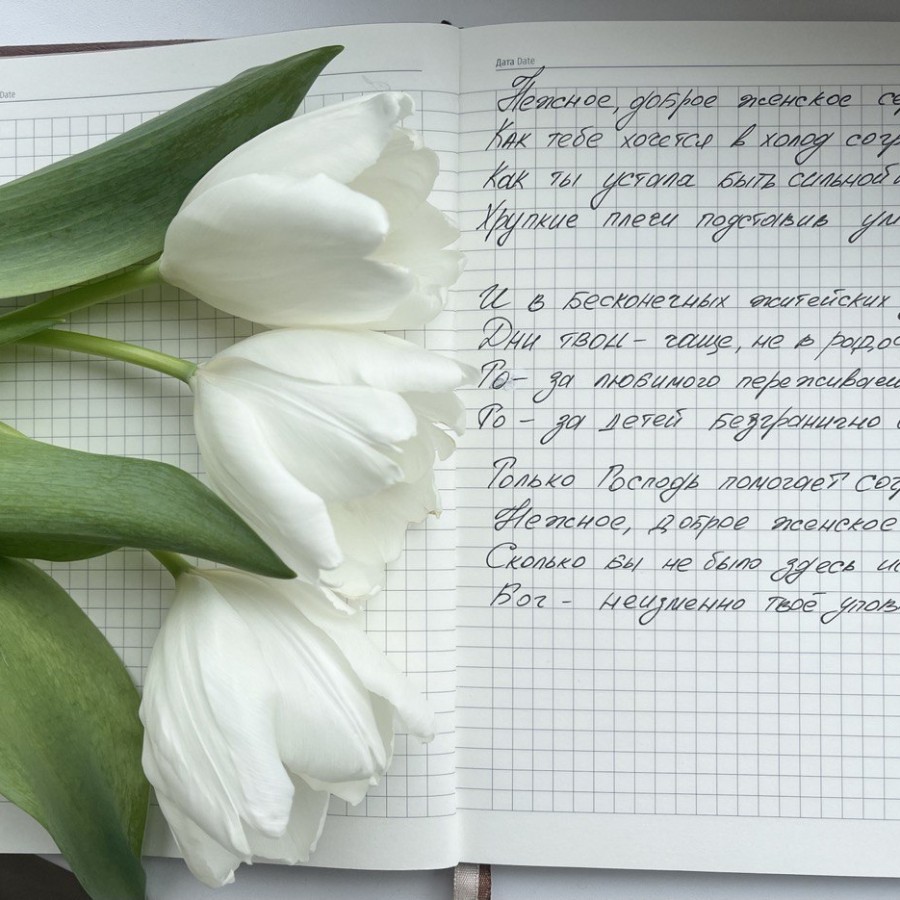 Date
Дата Date
Нежное, доброе женское се
Как тебе хочется в холод согр
Как ты устала быть сильной
Хрупкие плечи подставив ум
И в бесконечных житейских
Дни твои - чаще, не в радос
То - за любимого переживаеш
То - за детей безгранично
Только Господь помогает сог
Нежное, доброе женское
Сколько бы не было здесь ис
Бог - неизменно твоё упов